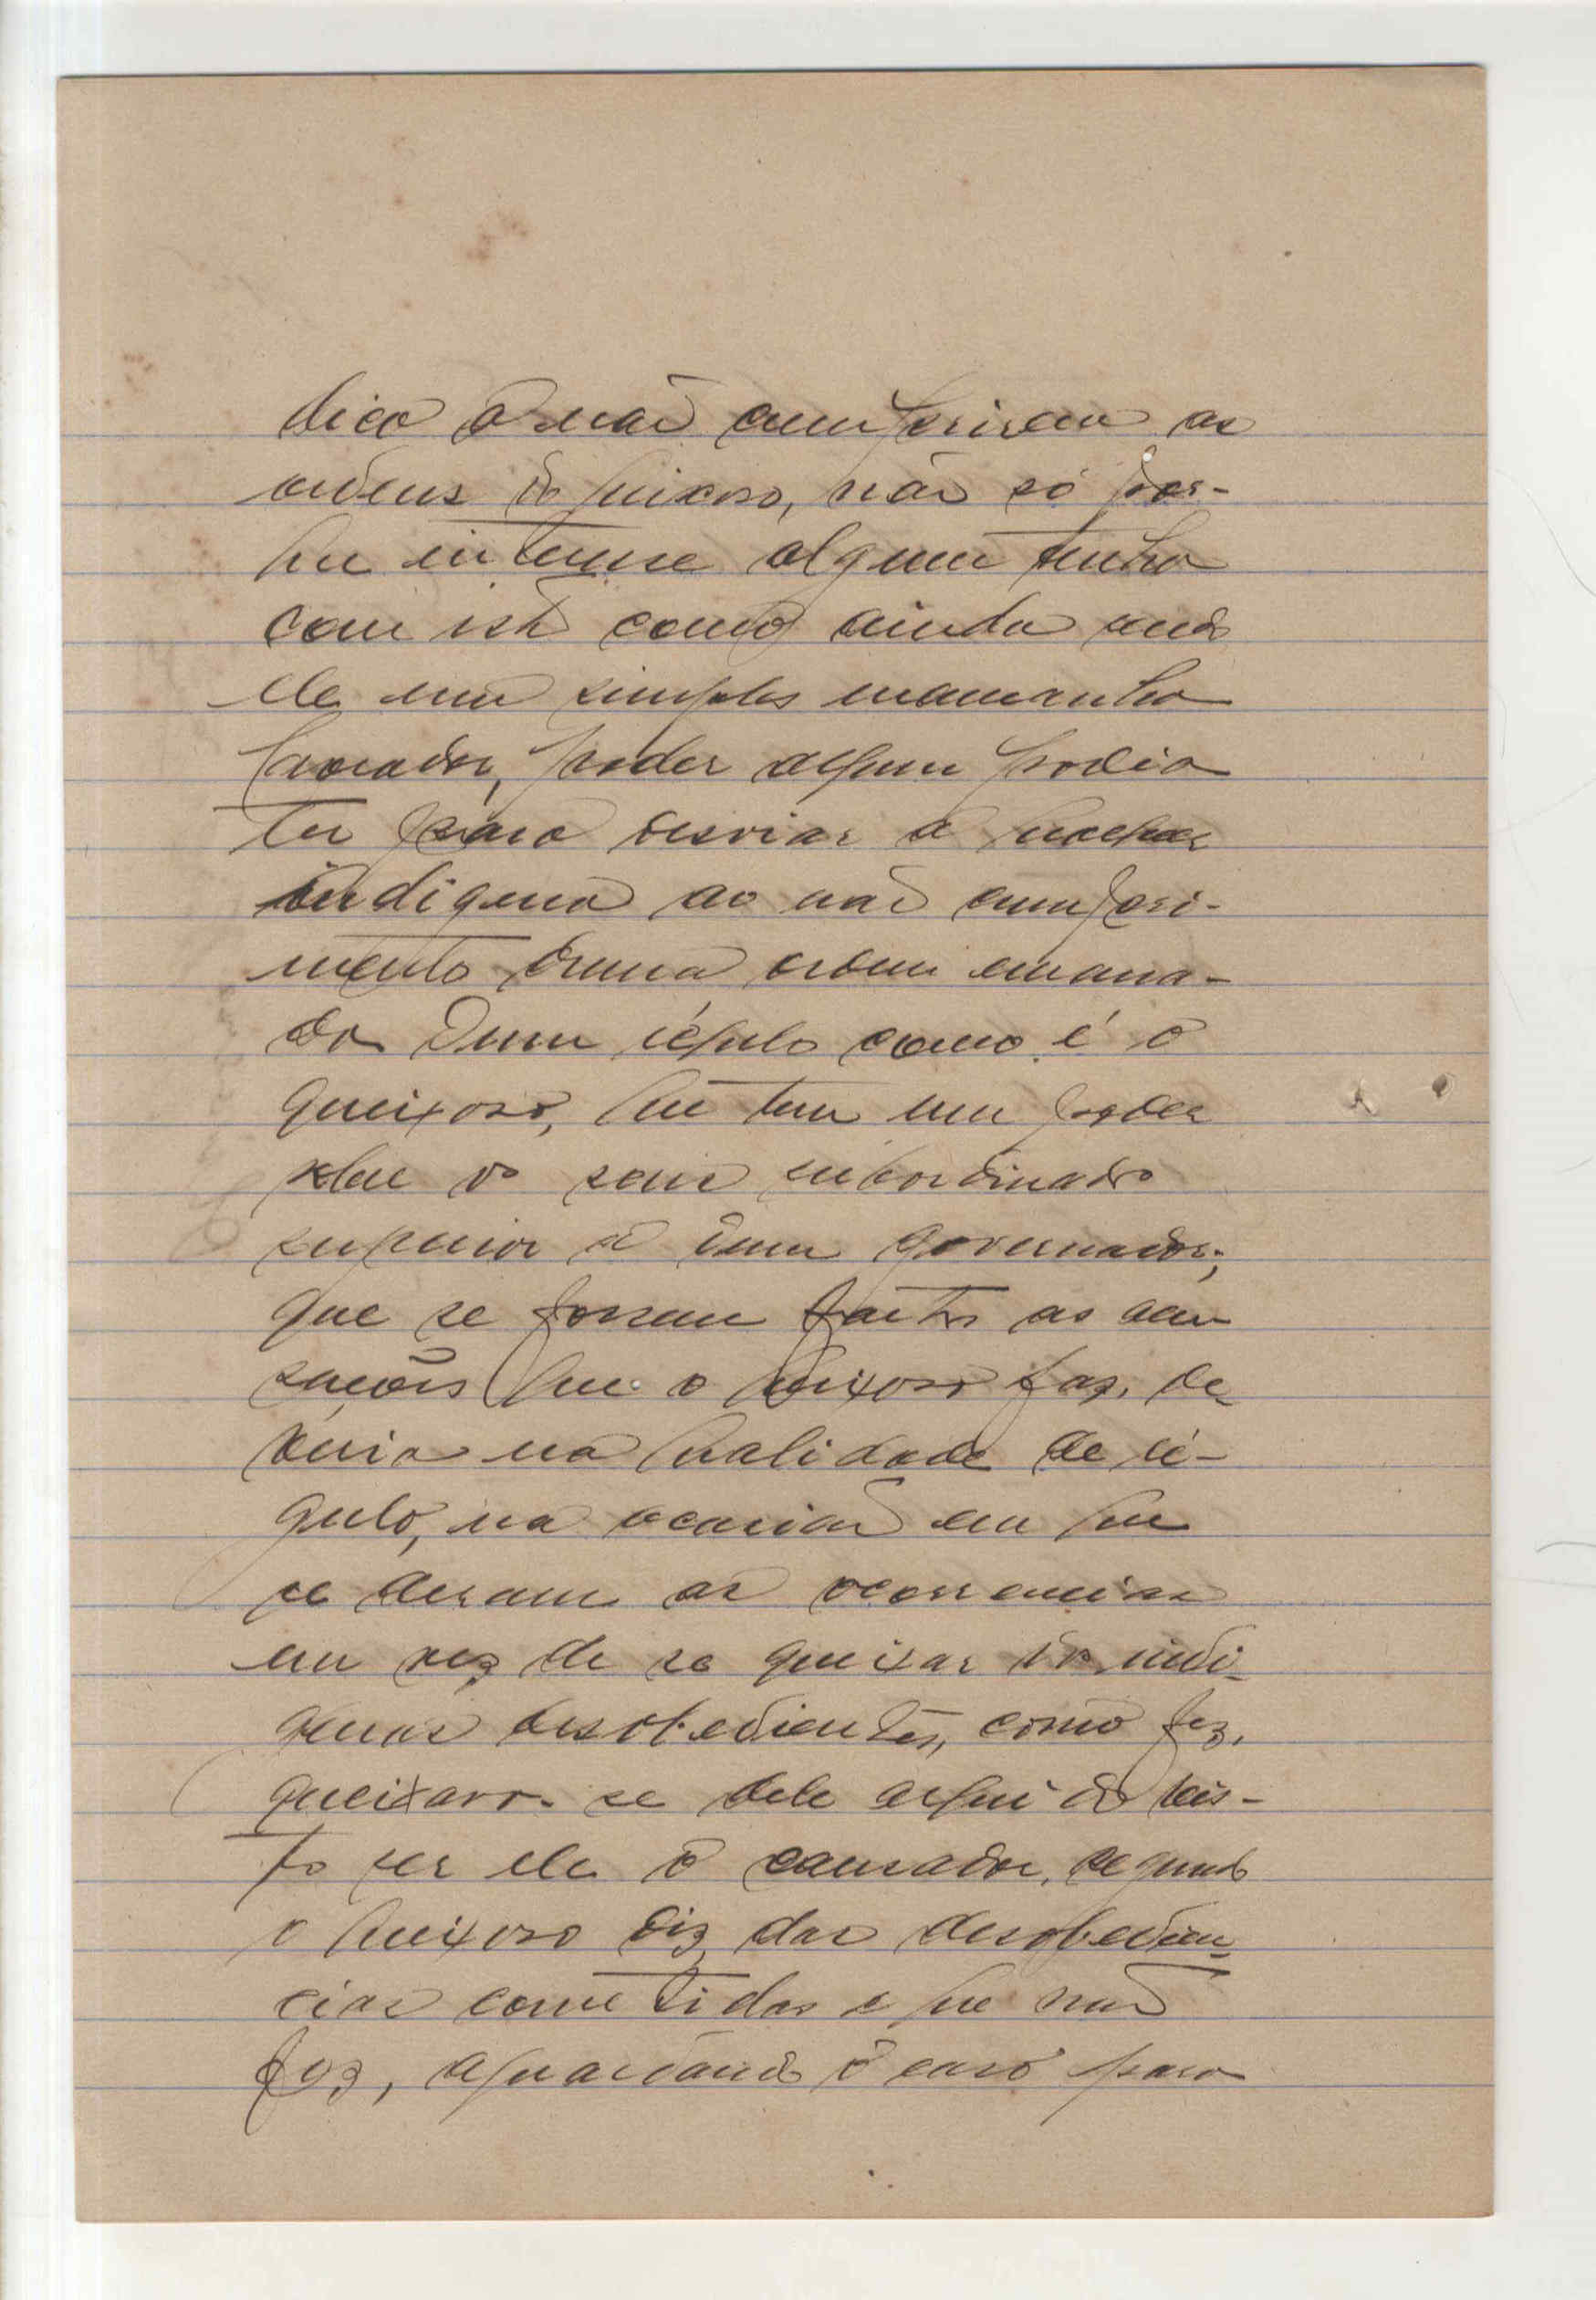 dico a não cumprirem as
ordens do queixoso, não só por-
que interesse algum tenho
com isto como ainda sendo
ele um simples
lavrador, poder algum podia
ter para desviar a
indigena ao não cumpri-
mento duma ordem emana-
da dum régulo como é o
queixoso, que tem um poder
sobre os seus subordinados
superior a dum governador;
que se fossem factos as acu
sações que o queixoso faz, de
veria na qualidade de ré-
gulo, na ocasião em que
se deram as ocorrencias
em vez de se queixar dos indi-
genas desobedientes, como fez,
queixar-se dele arguido vis-
to ser ele o causador, segundo
o queixoso diz das desobedien
cias cometidas e que não
fez, aguardando o caso para